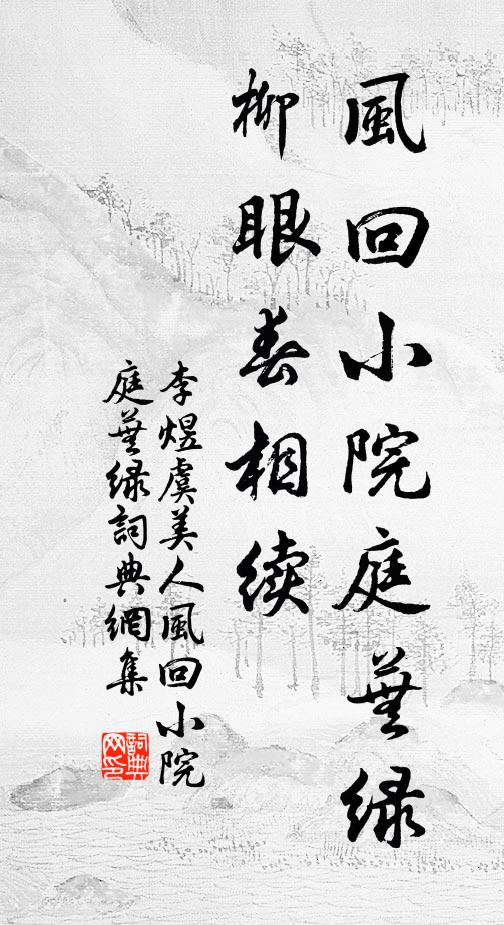 風回小院庭蕪绿
柳眼春相续
李煜虞美人風回小院
庭蕪绿詞典網集
詞典
网印